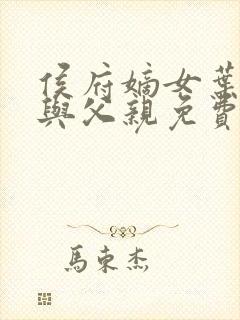 侯府嫡女葉
與父親免費
馬東杰